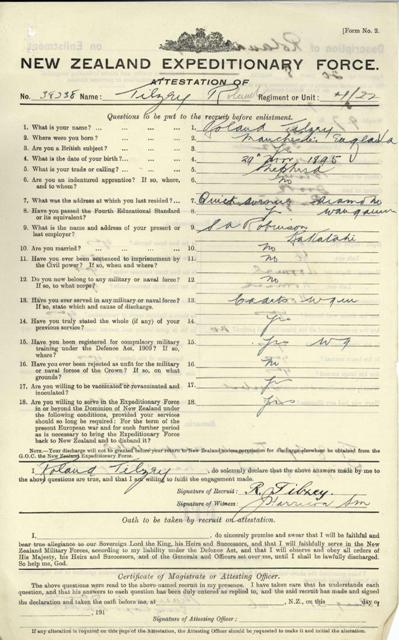 [Form No. 2.
NEW ZEALAND EXPEDITIONARY FORCE.
ATTESTATION OF
No. Name: Tilzey Roland Regiment or Unit:
Questions to be put to the recruit before enlistment.
1. What is your name? 1. Roland Tilzey
2. Where were you born? 2. Manchester England
3. Are you a British subject? 3. Yes
4. What is the date of your birth? 4. 1895
5. What is your trade or calling? 5. Shepherd
6. Are you an indentured apprentice? If so, where, and to whom? 6. No
7. What was the address at which you last resided? 7.
8. Have you passed the Fourth Educational Standard or its equivalent? 8. Yes
9. What is the name and address of your present or last employer? 9. Robinson
Kakatahi
10. Are you married? 10. No
11. Have you ever been sentenced to imprisonment by the Civil power? If so, when and where? 11. No
12. Do you now belong to any military or naval force? If so, to what corps? 12. No
13. Have you ever served in any military or naval force? If so, state which and cause of discharge. 13. Cadets
14. Have you truly stated the whole (if any) of your previous service? 14. Yes
15. Have you been registered for compulsory military training under the Defence Act, 1909? If so, where? 15. Yes
16. Have you ever been rejected as unfit for the military or naval forces of the Crown? If so, on what grounds? 16. No
17. Are you willing to be vaccinated or revaccinated and inoculated? 17. Yes
18. Are you willing to serve in the Expeditionary Force in or beyond the Dominion of New Zealand under the following conditions, provided your services should so long be required: For the term of the present European war and for such further period as is necessary to bring the Expeditionary Force back to New Zealand and to disband it? 18. Yes
NOTE.—Your discharge will not be granted before your return to New Zealand unless permission for discharge elsewhere be obtained from the G.O.C. the New Zealand Expeditionary Force.
I, Roland Tilzey, do solemnly declare that the above answers made by me to
the above questions are true, and that I am willing to fulfil the engagement made.
Signature of Recruit: R. Tilzey.
Signature of Witness:
Oath to be taken by recruit on attestation.
I, , do sincerely promise and swear that I will be faithful and
bear true allegiance to our Sovereign Lord the King, his Heirs and Successors, and that I will faithfully serve in the
New Zealand Military Forces, according to my liability under the Defence Act, and that I will observe and obey all orders of
His Majesty, his Heirs and Successors, and of the Generals and Officers set over me, until I shall be lawfully discharged.
So help me, God.
Certificate of Magistrate or Attesting Officer.
The above questions were read to the above-named recruit in my presence. I have taken care that he understands each
question, and that his answer to each question has been duly entered as replied to, and the said recruit has made and signed
the declaration and taken the oath before me, at , N.Z., on this day of
, 191
Signature of Attesting Officer:
If any alteration is required on this page of the Attestation, the Attesting Officer should be requested to make it and initial the alteration.